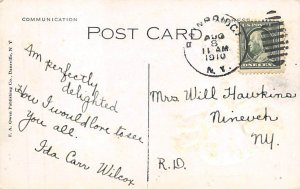 COMMUNICATION
POST CARD
AUG
8
11 AM
1910
N.Y.
Am perfectly
delighted
How I would love to see
you all.
Ida Carr Wilcox
Mrs Will Hawkins
Nineveh
NY.
R.D.
F. A. Owen Publishing Co., Dansville, N. Y.